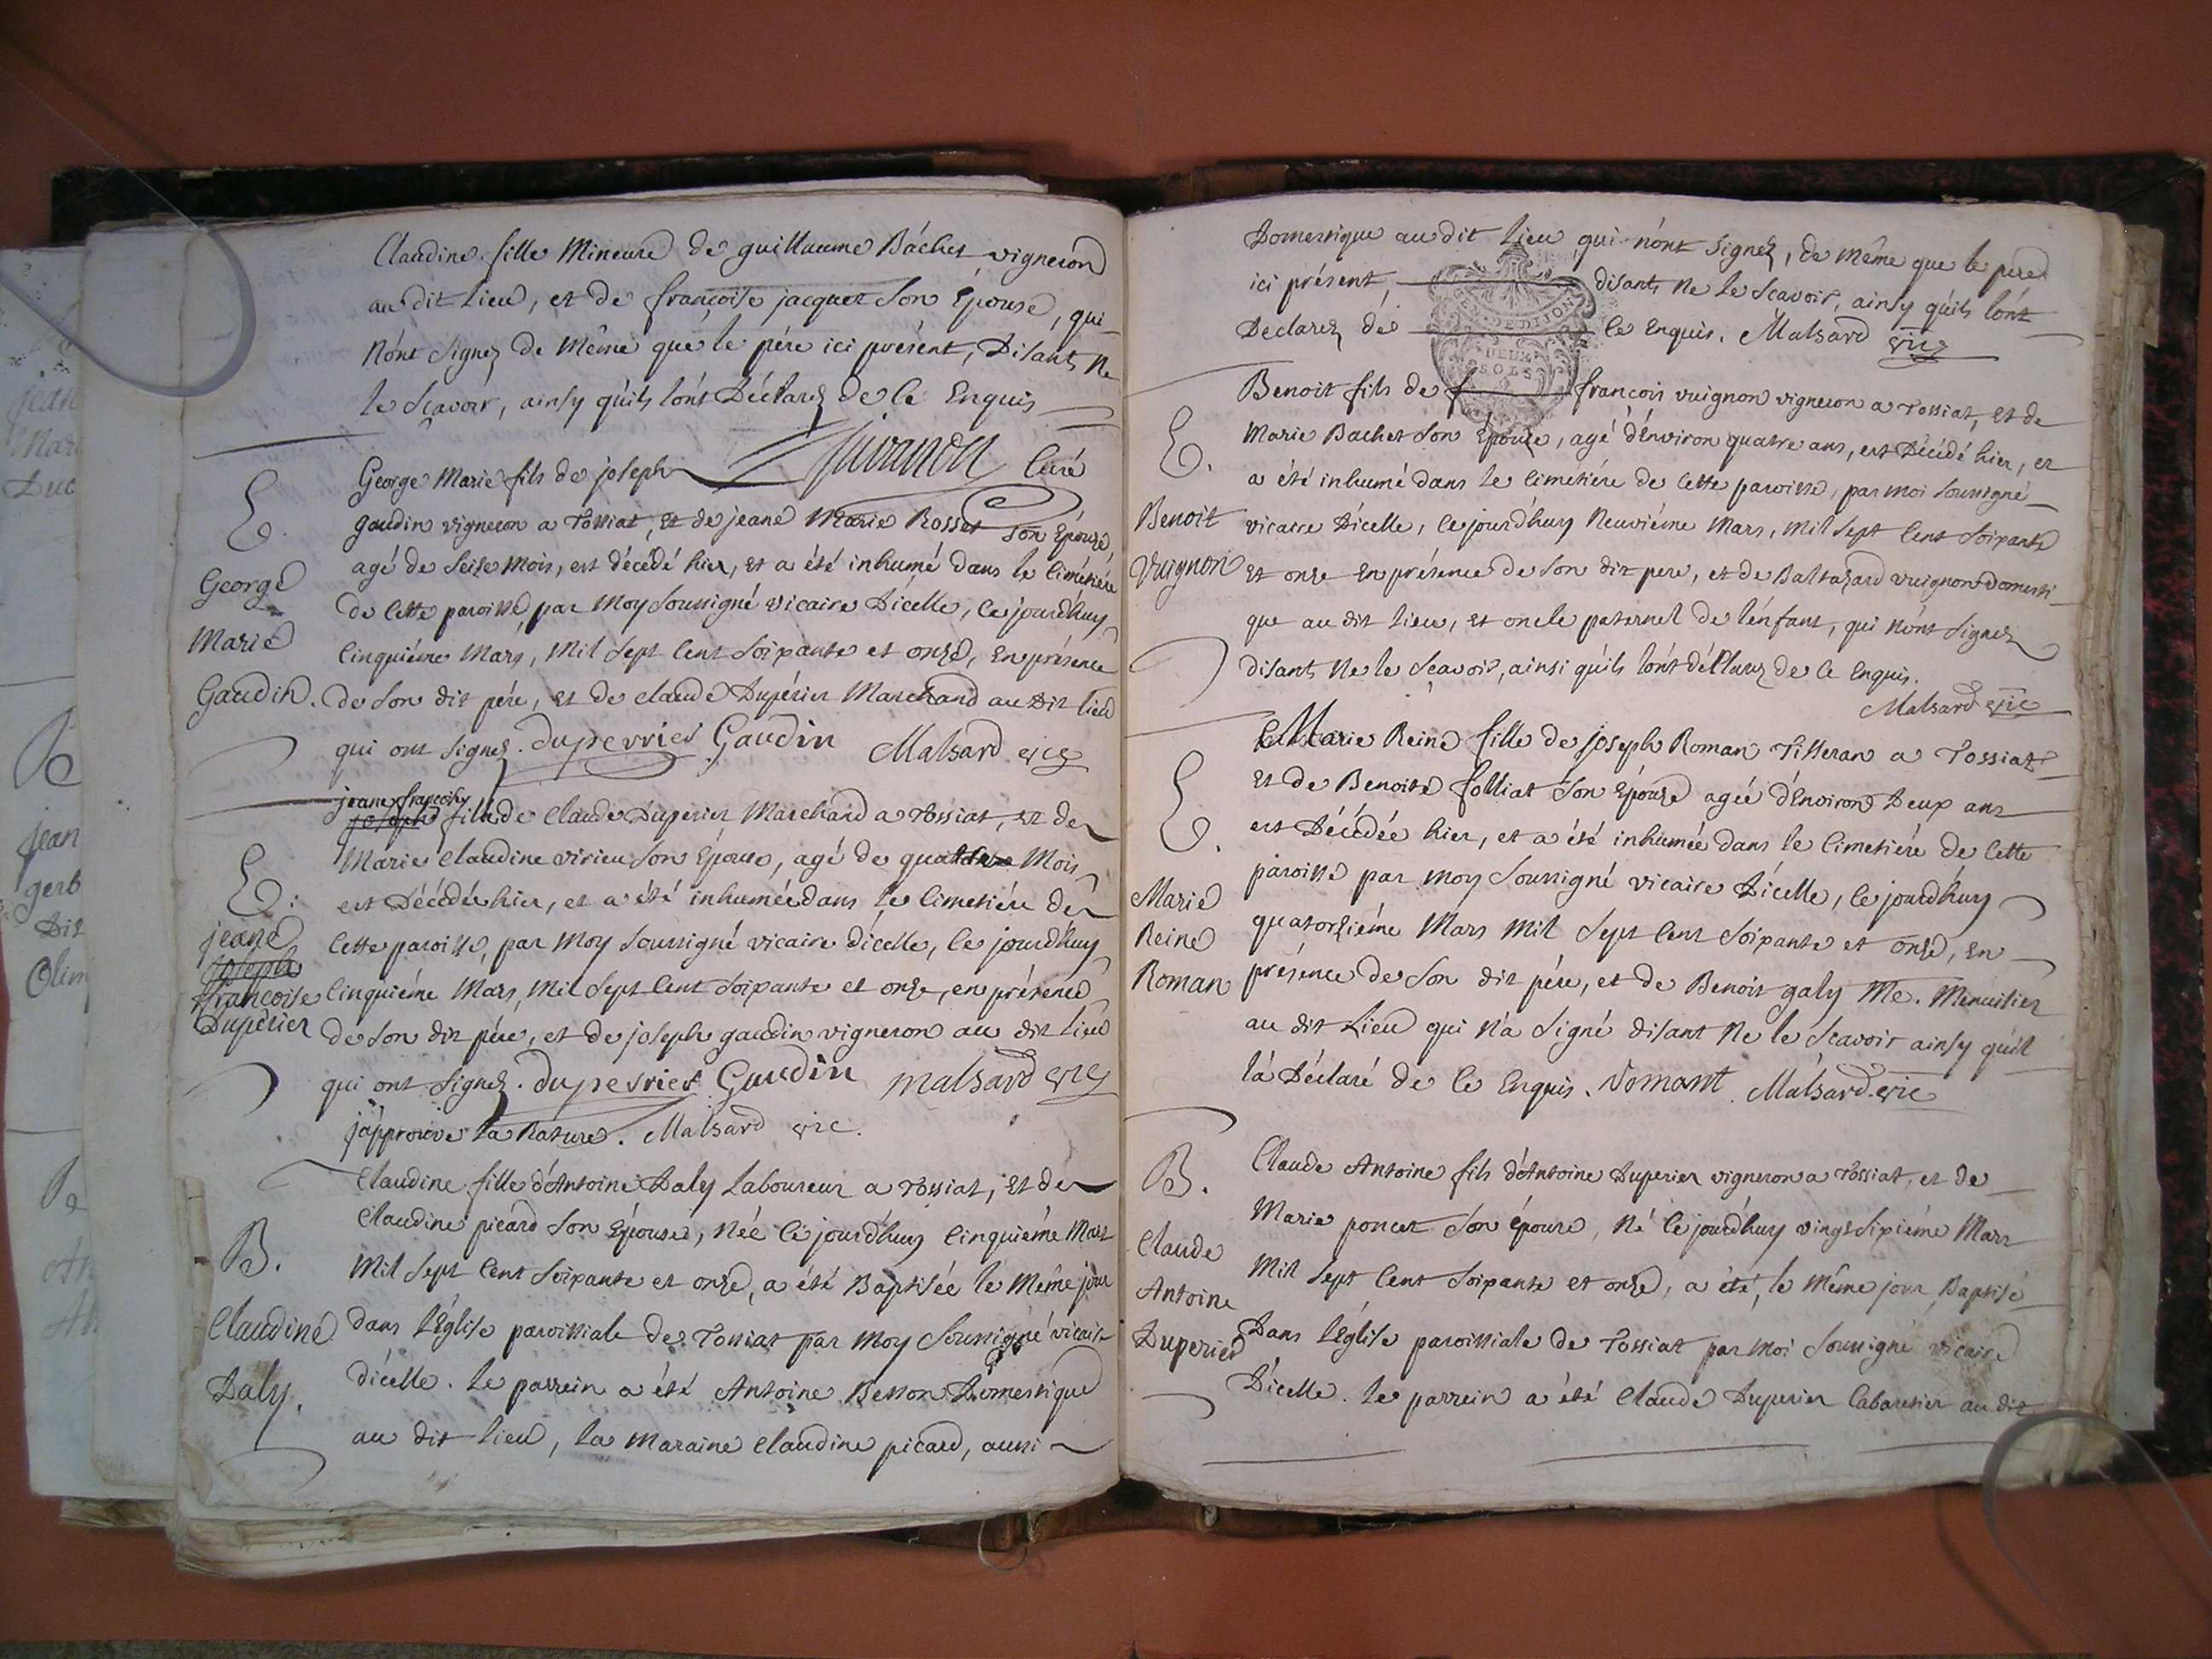 Claudine fille Mineure de guillaume Bachet vigneron
au dit Lieu, et de françoise jacquet son Epouse, qui
n'ont signez de même que le père ici présent, Disants ne
le sçavoir, ainsy qu'ils l'ont Déclarez de ce Enquis
curé
E.
George
Marie
Gaudin.
George Marie fils de joseph
gaudin vigneron a Tossiat, et de jeane Marie Rosset son Epouse
agé de seize mois, est décédé hier, et a été inhumé dans le cimétiére
de cette paroisse, par moy soussigné vicaire d'icelle, ce jourd'huy
cinquiéme Mars, mil sept cent soixante et onze, en présence
de son dit pére, et de claude Dupérier Marchand au dit lieu
qui ont signez. duperrier Gaudin Malsard vic
E.
jeane
joseph
françoise
Dupérier
jeane françoise
joseph fille de Claude Duperier Marchand a Tossiat, et de
Marie claudine virieu son Epouse, agé de quatre Mois
est Décédée hier, et a été inhumée dans le cimetiére de
cette paroisse, par moy soussigné vicaire d'icelle, ce jourd'huy
cinquiéme Mars, mil sept cent soixante et onze, en présence
de son dit pére, et de joseph gaudin vigneron au dit lieu
qui ont signez. duperrier Gaudin malsard vic
j'approuve la Rature. Malsard vic.
B.
Claudine
Daly.
Claudine fille d'Antoine Daly Laboureur a Tossiat, et de
Claudine picard son Epouse, Née ce jourd'huy cinquiéme Mars
mil sept cent soixante et onze, a été Baptisée le même jour
dans l'Eglise paroissiale de Tossiat par moy soussigné vicaire
d'icelle. Le parrein a été Antoine Besson Domestique
au dit lieu, la maraine claudine picard, aussi
Domestique au dit Lieu qui n'ont signez, de même que le pere
ici présent, disants ne le scavoir, ainsy qu'ils l'ont
Declarez de ce Enquis. Malsard vic
GEN. DE DIJON
DEUX
SOLS
E.
Benoit
Vuignon
Benoit fils de françois vuignon vigneron a Tossiat, et de
Marie Bachet son Epouse, agé d'Environ quatre ans, est Décédé hier, et
a été inhumé dans le cimétiére de cette paroisse, par moi soussigné
vicaire d'icelle, ce jourd'huy Neuviéme Mars, mil sept cent soixante
et onze en présence de son dit pere, et de Baltazard vuignon Domesti
que au dit lieu, et oncle paternel de l'enfant, qui n'ont signez
disants ne le scavoir, ainsi qu'ils l'ont déclarez de ce enquis.
Malsard vic
E.
Marie
Reine
Roman
Marie Reine fille de joseph Roman Tisseran a Tossiat
et de Benoite folliat son Epouse agée d'Environ Deux ans
est Décédée hier, et a été inhumée dans le cimetiére de cette
paroisse par moy soussigné vicaire d'icelle, ce jourd'huy
quatorziéme Mars mil sept cent soixante et onze, en
présence de son dit pére, et de Benoit galy Me. Menuisier
au dit Lieu qui n'a signé disant ne le scavoir ainsy qu'il
l'a Déclaré de ce Enquis. Romant Malsard vic
B.
Claude
Antoine
Duperier
Claude Antoine fils d'Antoine Duperier vigneron a Tossiat, et de
Marie poncet son épouse, Né ce jourd'huy vingt sixiéme Mars
mil sept cent soixante et onze, a été, le même jour, Baptisé
Dans l'Eglise paroissiale de Tossiat par moi soussigné vicaire
D'icelle. Le parrein a été claude Duperier cabaretier au dit